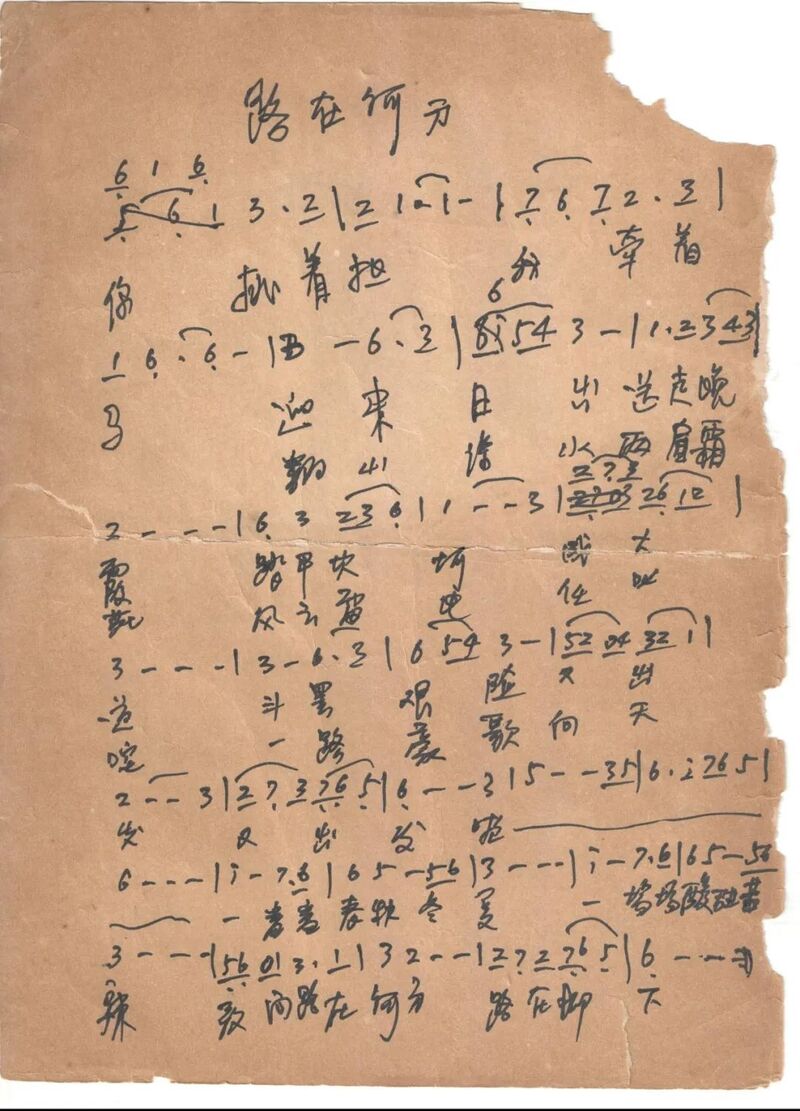 路在何方
6 1 6
3 · 2 | 2 1 · 1 - | 7 6 7 2 · 3 |
你 挑着担 我 牵着
6
1 6 · 6 - | - 6 · 3 | 5 4 3 - | 1 · 2 3 4 3 |
马 迎来 日 出 送走晚
翻山 涉 水 两肩霜
2 7 3
2 - - - | 6 3 2 3 6 | 1 - - 3 | 2 6 1 2 |
霞 踏平坎 坷 成 大
风云雷 电 任 叱
3 - - - | 3 - 6 · 3 | 6 5 4 3 - | 5 2 0 4 3 2 1 |
道 斗罢 艰 险 又 出
咤 一路 豪 歌 向 天
2 - - 3 | 2 7 3 7 6 5 | 6 - - 3 | 5 - - 3 5 | 6 · i 7 6 5 |
发 又 出 发 啦
6 - - - | i - 7 · 6 | 6 5 - 5 6 | 3 - - - | i - 7 · 6 | 6 5 - 5 6
一番番春秋冬 夏 一场场酸甜苦
3 - - - | 5 6 0 1 3 · 1 | 3 2 - - | 2 7 2 7 6 5 | 6 - - -
辣 敢问路在何方 路在脚 下